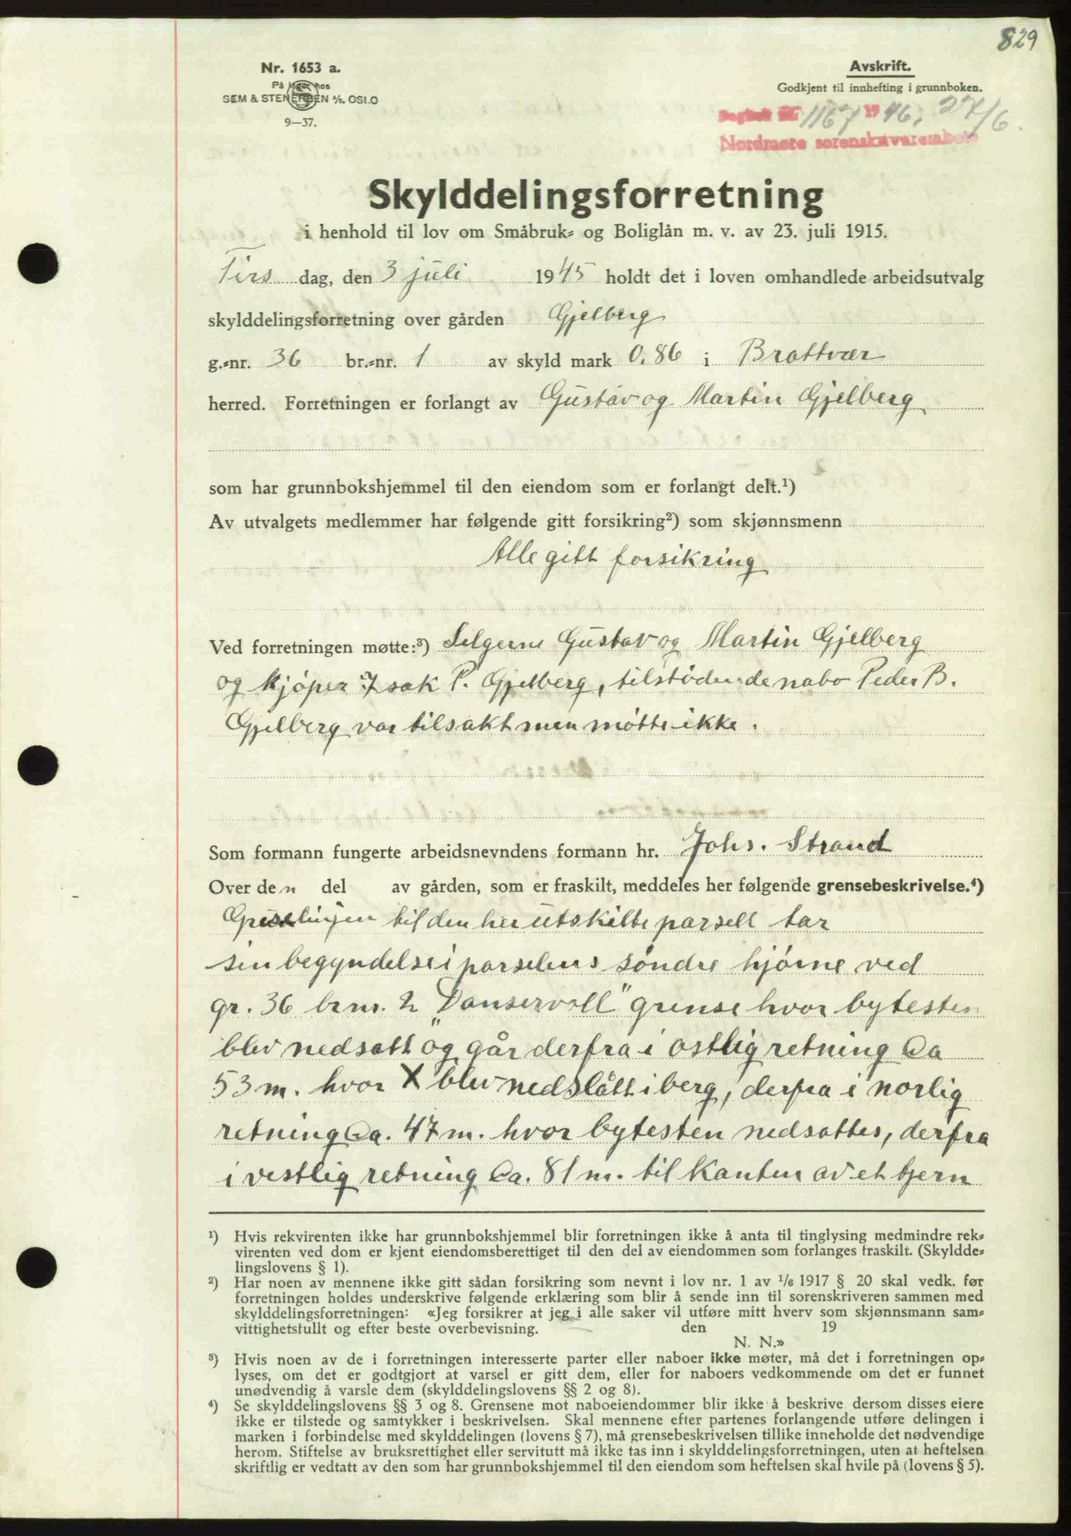 829
Nr. 1653 a.
På lager hos
SEM & STENERSEN A/S. OSLO
9—37.
Avskrift.
Godkjent til innhefting i grunnboken.
Dagbok nr. 1167 1946, 27/6.
Nordmøre sorenskriverembete
Skylddelingsforretning
i henhold til lov om Småbruk= og Boliglån m. v. av 23. juli 1915.
Tirs dag, den 3 juli 1945 holdt det i loven omhandlede arbeidsutvalg
skylddelingsforretning over gården Gjelberg
g.=nr. 36 br.=nr. 1 av skyld mark 0.86 i Brattvær
herred. Forretningen er forlangt av Gustav og Martin Gjelberg
som har grunnbokshjemmel til den eiendom som er forlangt delt.¹)
Av utvalgets medlemmer har følgende gitt forsikring²) som skjønnsmenn
Alle gitt forsikring
Ved forretningen møtte:³) Selgerne Gustav og Martin Gjelberg
og kjöper Isak P. Gjelberg, tilstödende nabo Peder B.
Gjelberg var tilsakt men mötte ikke.
Som formann fungerte arbeidsnevndens formann hr. Johs. Strand
Over den del av gården, som er fraskilt, meddeles her følgende grensebeskrivelse.⁴)
Grenselinjen til den her utskilte parsell tar
sin begyndelse i parselens söndre hjörne ved
gr. 36 br nr. 2 "Danservoll" grense hvor bytesten
blev nedsatt og går derfra i ostlig retning Ca
53 m. hvor X blev nedslått i berg, derfra i norlig
retning Ca. 47 m. hvor bytesten nedsattes, derfra
i vestlig retning Ca. 81 m. til kanten av et tjern
¹) Hvis rekvirenten ikke har grunnbokshjemmel blir forretningen ikke å anta til tinglysing medmindre rek=
virenten ved dom er kjent eiendomsberettiget til den del av eiendommen som forlanges fraskilt. (Skyldde=
lingslovens § 1).
²) Har noen av mennene ikke gitt sådan forsikring som nevnt i lov nr. 1 av 1/6 1917 § 20 skal vedk. før
forretningen holdes underskrive følgende erklæring som blir å sende inn til sorenskriveren sammen med
skylddelingsforretningen: «Jeg forsikrer at jeg i alle saker vil utføre mitt hverv som skjønnsmann sam=
vittighetsfullt og efter beste overbevisning. den 19
N. N.»
³) Hvis noen av de i forretningen interesserte parter eller naboer ikke møter, må det i forretningen op=
lyses, om det er godtgjort at varsel er gitt dem, eller for naboers vedkommende om det er funnet
unødvendig å varsle dem (skylddelingslovens §§ 2 og 8).
⁴) Se skylddelingslovens §§ 3 og 8. Grensene mot naboeiendommer blir ikke å beskrive dersom disses eiere
ikke er tilstede og samtykker i beskrivelsen. Skal mennene efter partenes forlangende utføre delingen i
marken i forbindelse med skylddelingen (lovens § 7), må grensebeskrivelsen tillike inneholde det nødvendige
herom. Stiftelse av bruksrettighet eller servitutt må ikke tas inn i skylddelingsforretningen, uten at heftelsen
skriftlig er vedtatt av den som har grunnbokshjemmel til den eiendom som heftelsen skal hvile på (lovens § 5).